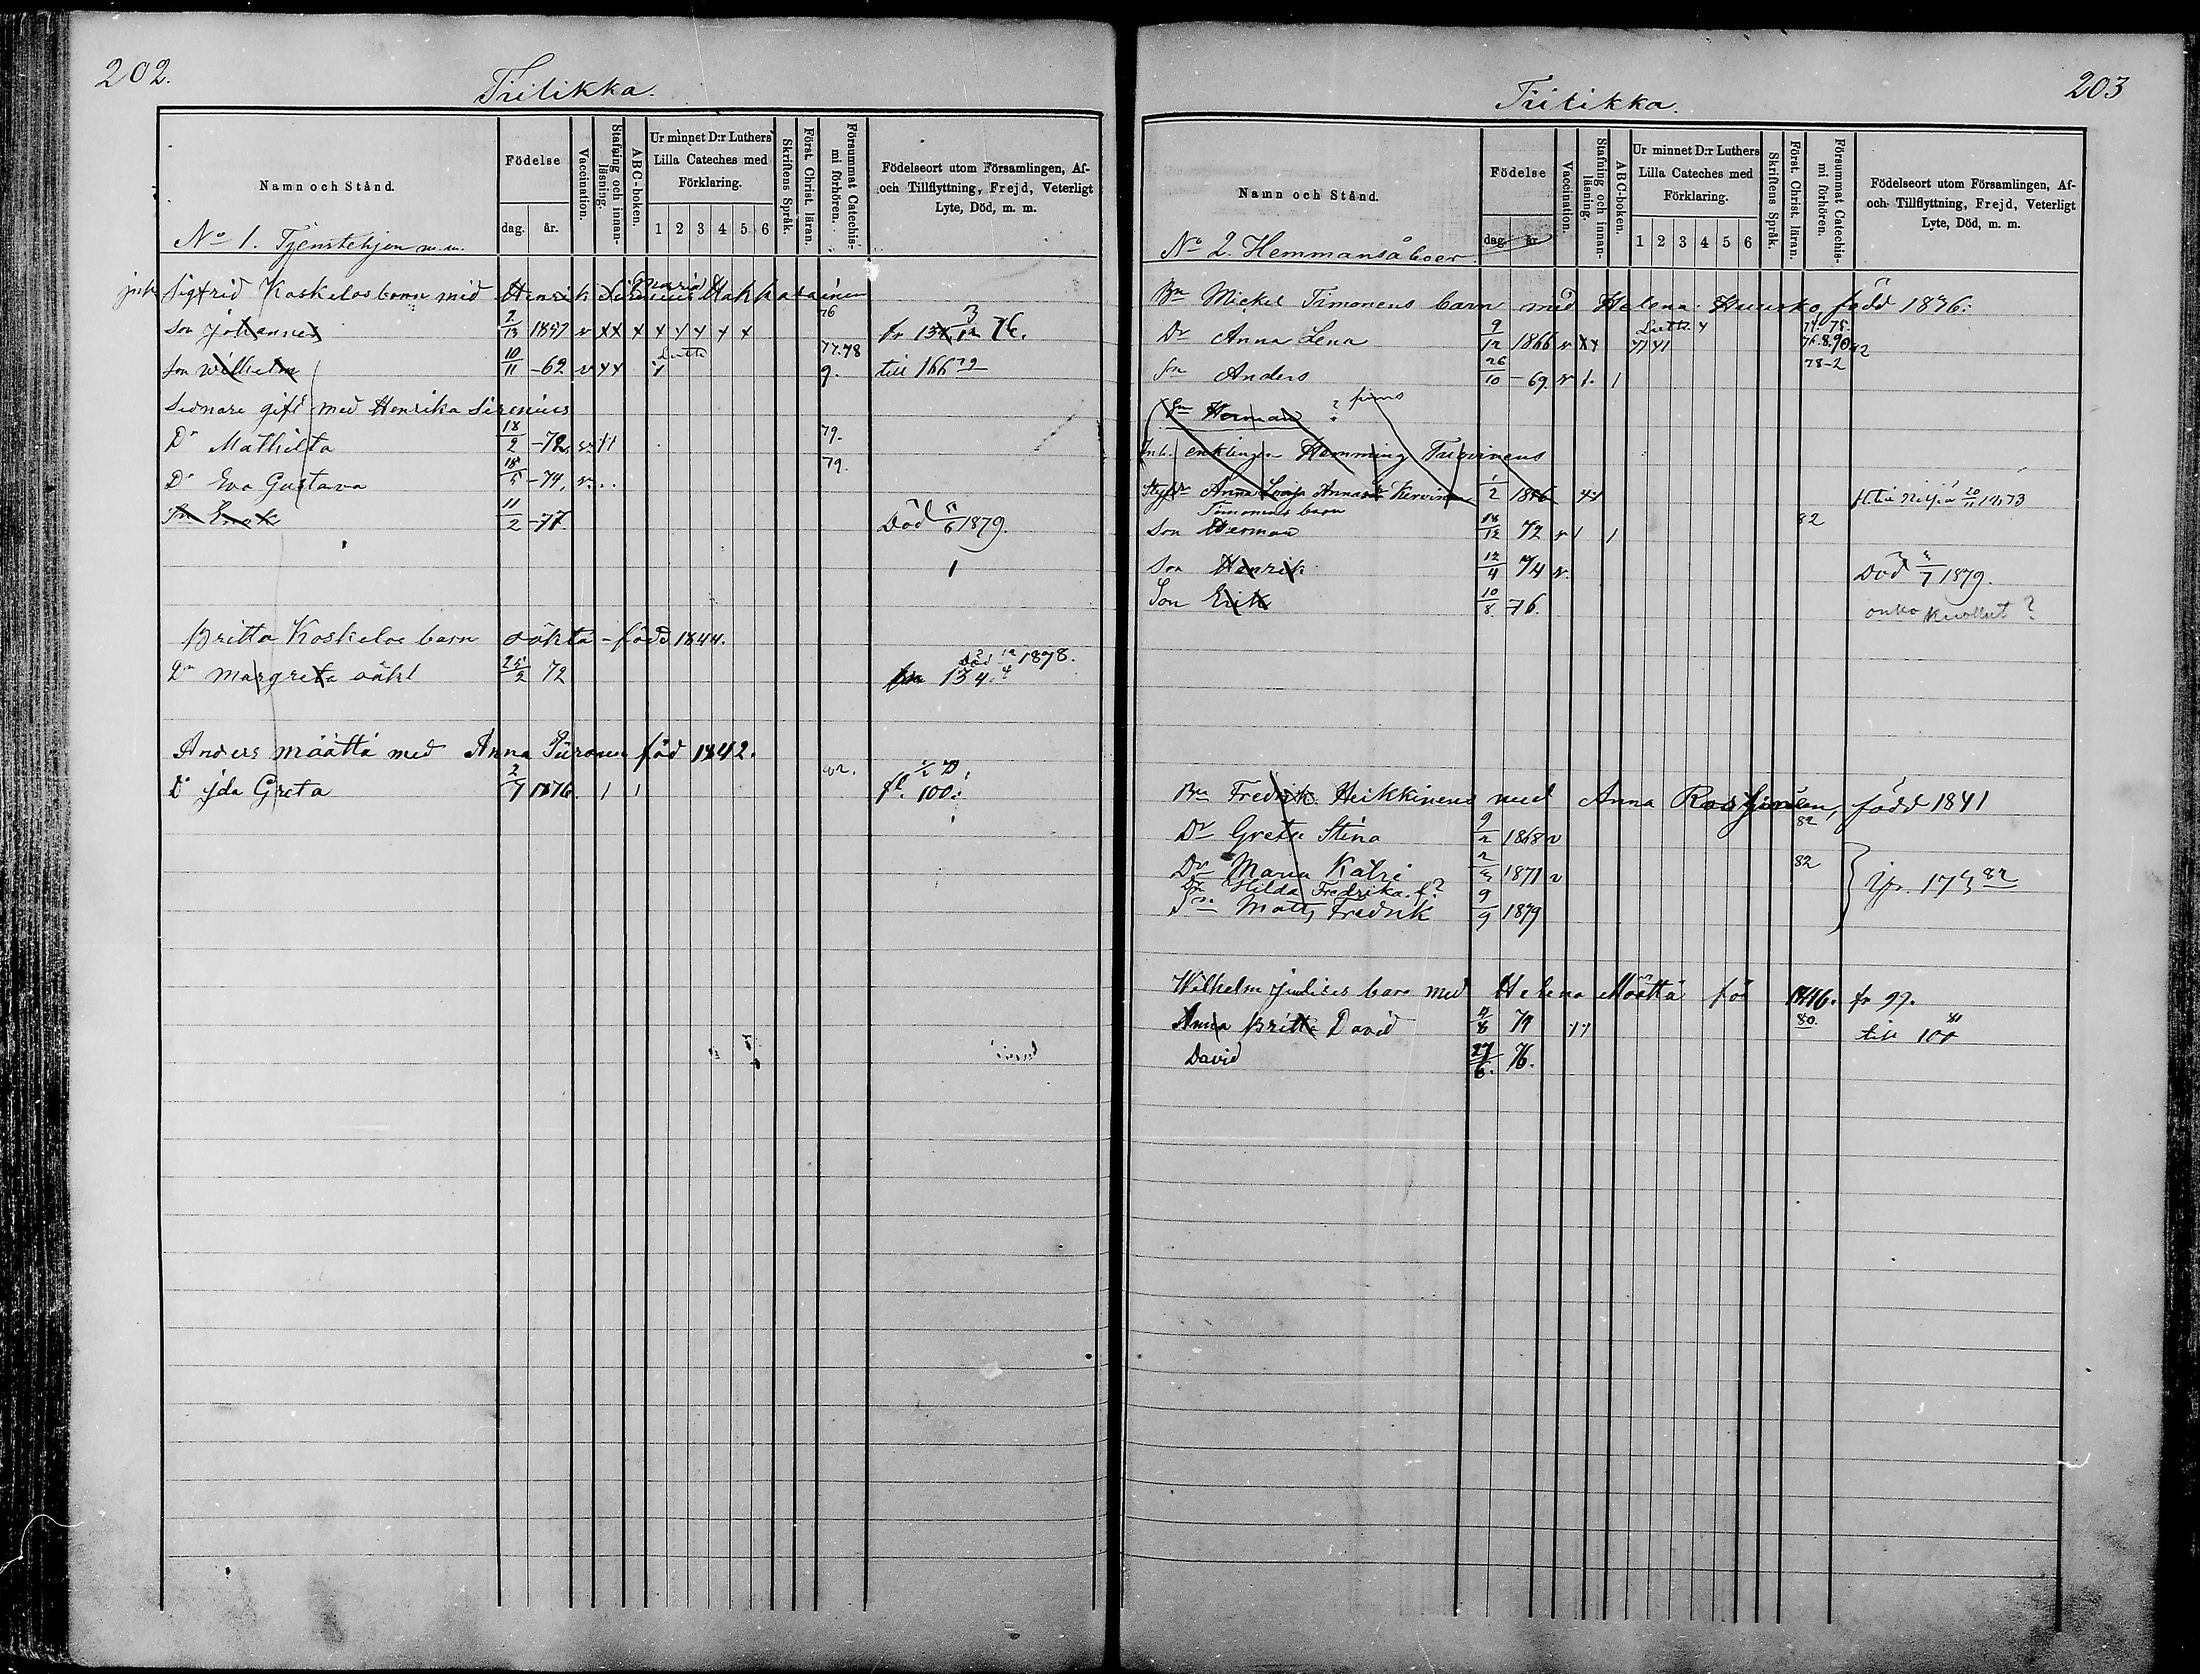 202.
Tiilikka.
Namn och Stånd.
Födelse
dag.
år.
Vaccination.
Stafning och innan-
läsning.
ABC-boken.
Ur minnet D:r Luthers
Lilla Cateches med
Förklaring.
1 2 3 4 5 6
Skriftens Språk.
Först. Christ. läran.
Försummat Catechis-
mi förhören.
Födelseort utom Församlingen, Af-
och Tillflyttning, Frejd, Veterligt
Lyte, Död, m. m.
No 1. Tjenstehjon m.m.
Sigfrid Koskelos barn med
76
Son Johannes 2/13 1857 v xx x x x x x x fr
Luth
77.78
Son Wilhelm 10/11 -62 v xx 1 9. till 166 79
Sednare gift med Henrika Sirenius
Dr Mathilta 18/2 -72 v 11 79.
Dr Eva Gustava 18/5 -74, v. 79.
Sn Enok 11/2 -77. Död 5/6 1879.
Britta Koskelos barn oäkta - född 1844.
Död 12/4 1878.
Dr Margreta oäkt 25/2 72 134.
Anders Määttä med Anna Piironen föd 1842.
Dr Ida Greta 2/7 1876. 1 1 82. fl. 100.
203
Tiilikka.
Namn och Stånd.
Födelse
dag.
år.
Vaccination.
Stafning och innan-
läsning.
ABC-boken.
Ur minnet D:r Luthers
Lilla Cateches med
Förklaring.
1 2 3 4 5 6
Skriftens Språk.
Först. Christ. läran.
Försummat Catechis-
mi förhören.
Födelseort utom Församlingen, Af-
och Tillflyttning, Frejd, Veterligt
Lyte, Död, m. m.
No 2. Hemmansåboer.
Bn Mickel Timonens barn med Helena Huusko, född 1836.
Luth. x 74 75.
Dr Anna Lena 9/12 1866 v xx
Sn Anders 26/10 -69. v 1. 1 78-2
Sn Herman ? finns
Inh. enklingen Hemming
Styfdr Anna Lovisa 1/2 1856 xx 20/11 1873
Timonens barn
Son Herman 18/12 72 v 1 1 82
Son Henrik 12/4 74 v. Död 3/7 1879.
Son Erik 10/8 -76. onko kuollut?
Bn Fredrik Heikkinens med Anna född 1841
Dr Greta Stina 9/2 1868 v 82
Dr Maria Katri 1871 v 82
Dr Hilda Fredrika. f.?
Sn Matts Fredrik 9/9 1879
Wilhelm barn med Helena Määttä föd 1846. fr 99.
Anna Britta David 4/8 74 11 80. till 100 81
David 27/6. 76.